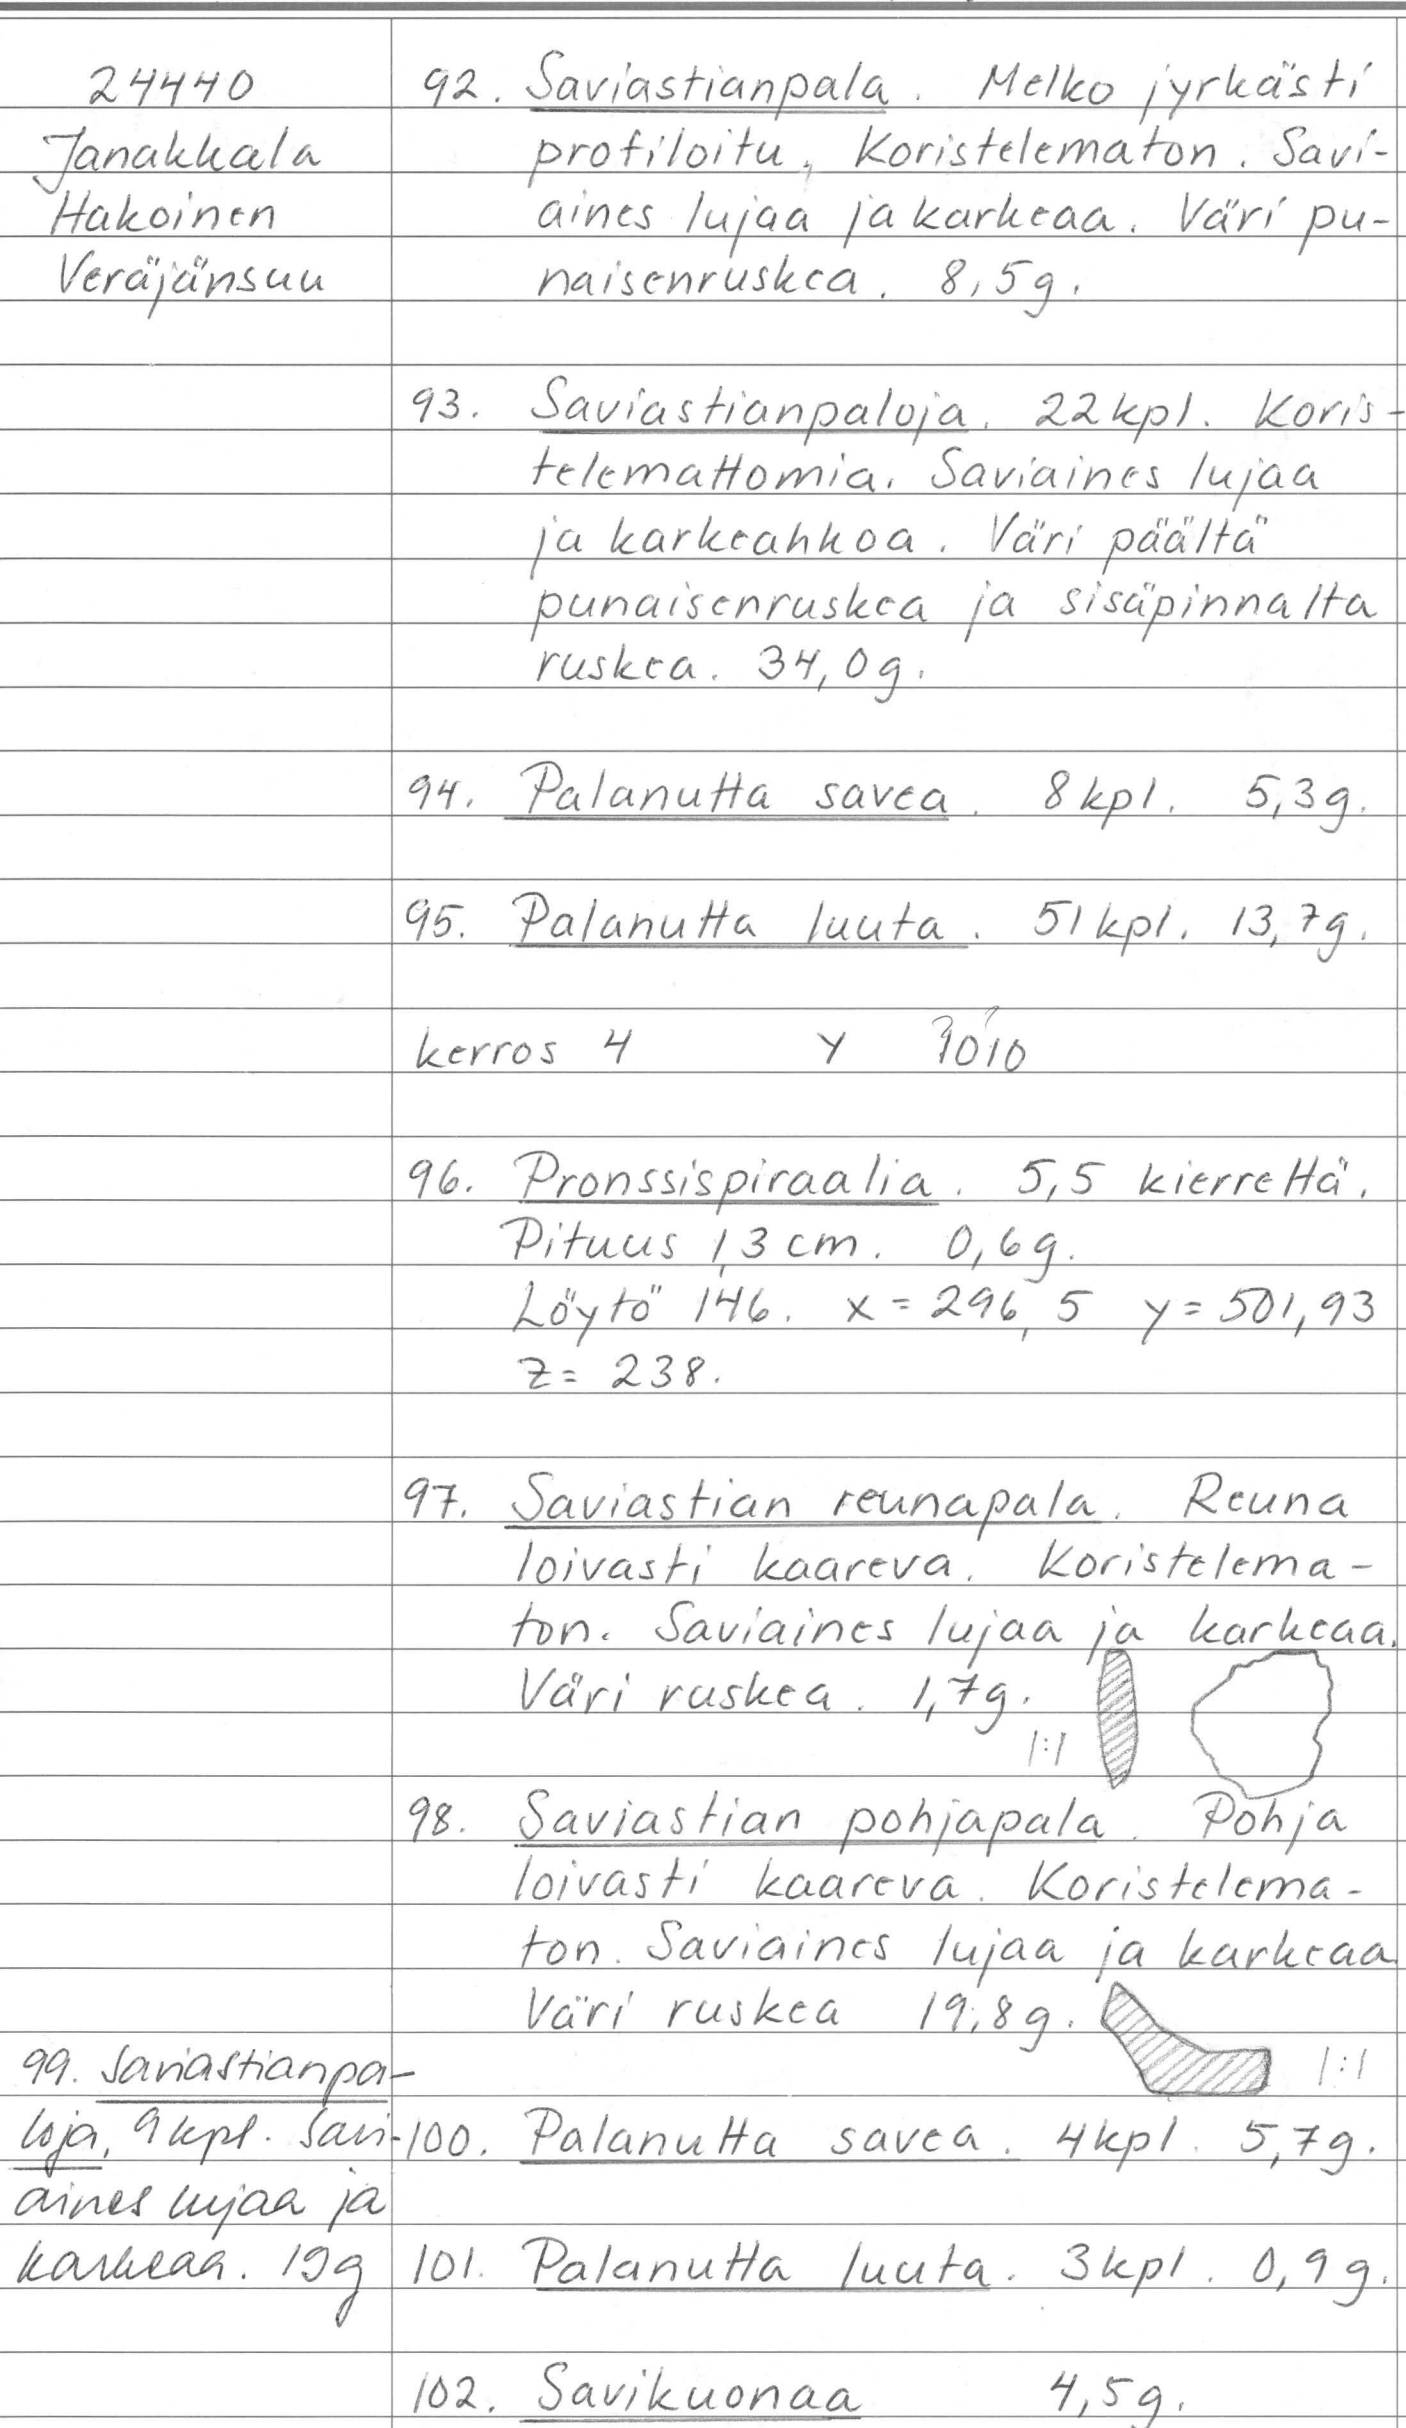 24440
Janakkala
Hakoinen
Veräjänsuu
92. Saviastianpala. Melko jyrkästi
profiloitu, Koristelematon. Savi-
aines lujaa ja karkeaa. Väri pu-
naisenruskea. 8,5g.
93. Saviastianpaloja. 22kpl. Koris-
telemattomia. Saviaines lujaa
ja karkeahkoa. Väri päältä
punaisenruskea ja sisäpinnalta
ruskea. 34,0g.
94. Palanutta savea. 8kpl. 5,3g.
95. Palanutta luuta. 51kpl. 13,7g.
kerros 4 Y
96. Pronssispiraalia. 5,5 kierrettä.
Pituus 1,3cm. 0,6g.
Löytö 146. x=296,5 y=501,93
z= 238.
97. Saviastian reunapala. Reuna
loivasti kaareva. Koristelema-
ton. Saviaines lujaa ja karkeaa.
Väri ruskea. 1,7g.
1:1
98. Saviastian pohjapala. Pohja
loivasti kaareva. Koristelema-
ton. Saviaines lujaa ja karkeaa
Väri ruskea 19,8g.
1:1
99. Saviastianpa-
loja, 9kpl. Savi-
aines lujaa ja
karkeaa. 19g
100. Palanutta savea. 4kpl. 5,7g.
101. Palanutta luuta. 3kpl. 0,9g.
102. Savikuonaa 4,5g.